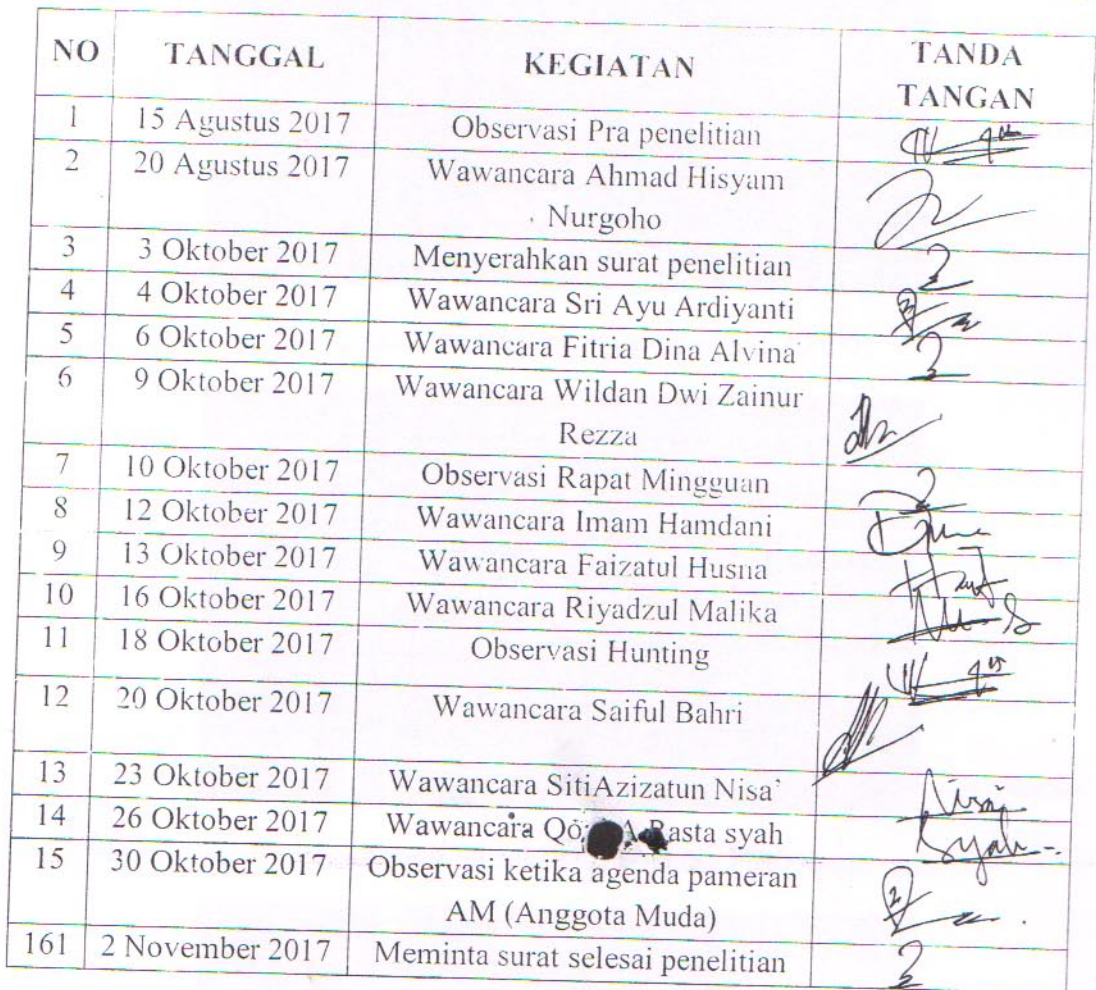 NO TANGGAL KEGIATAN TANDA TANGAN
1 15 Agustus 2017 Observasi Pra penelitian
2 20 Agustus 2017 Wawancara Ahmad Hisyam
Nurgoho
3 3 Oktober 2017 Menyerahkan surat penelitian
4 4 Oktober 2017 Wawancara Sri Ayu Ardiyanti
5 6 Oktober 2017 Wawancara Fitria Dina Alvina
6 9 Oktober 2017 Wawancara Wildan Dwi Zainur
Rezza
7 10 Oktober 2017 Observasi Rapat Mingguan
8 12 Oktober 2017 Wawancara Imam Hamdani
9 13 Oktober 2017 Wawancara Faizatul Husna
10 16 Oktober 2017 Wawancara Riyadzul Malika
11 18 Oktober 2017 Observasi Hunting
12 20 Oktober 2017 Wawancara Saiful Bahri
13 23 Oktober 2017 Wawancara SitiAzizatun Nisa'
14 26 Oktober 2017 Wawancara Rasta syah
15 30 Oktober 2017 Observasi ketika agenda pameran
AM (Anggota Muda)
161 2 November 2017 Meminta surat selesai penelitian